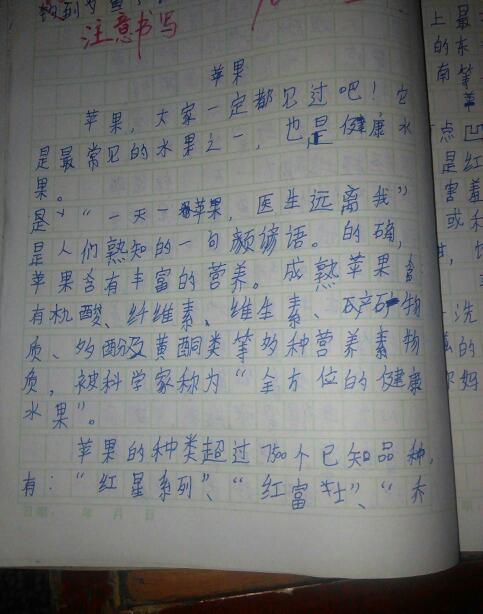 注意书写
苹果
苹果，大家一定都见过吧！它
是最常见的水果之一，也是健康水
果。
是"一天一苹果，医生远离我"
是人们熟知的一句颜谚语。的确，
苹果含有丰富的营养。成熟苹果含
有机酸、纤维素、维生素、矿物
质、多酚及黄酮类等多种营养素物
质，被科学家称为"全方位的健康
水果"。
苹果的种类超过7500个已知品种，
有："红星系列"、"红富士"、"乔
上最
的东
南等
点凹
是红
害羞
或
洗
的
妈
日期： 年 月 日